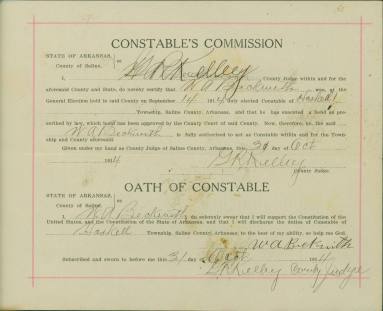 CONSTABLE'S COMMISSION
STATE OF ARKANSAS,
County of Saline.
ss
I, Kelley County Judge within and for the
aforesaid County and State, do hereby certify that W A Beckwith was, at the
General Election held in said County on September 14 1914 duly elected Constable of Haskell
Township, Saline County, Arkansas, and that he has executed a bond as pre-
scribed by law, which bond has been approved by the County Court of said County. Now, therefore, he, the said
W. A Beckwith is fully authorized to act as Constable within and for the Town-
ship and County aforesaid.
Given under my hand as County Judge of Saline County, Arkansas, this 31 day of Oct
1914 Kelley
County Judge.
OATH OF CONSTABLE
STATE OF ARKANSAS,
County of Saline.
ss
I, W. A Beckwith do solemnly swear that I will support the Constitution of the
United States, and the Constitution of the State of Arkansas, and that I will discharge the duties of Constable of
Haskell Township, Saline County, Arkansas, to the best of my ability, so help me God.
W A Beckwith
Subscribed and sworn to before me this 31 day of Oct 1914
Kelley County Judge